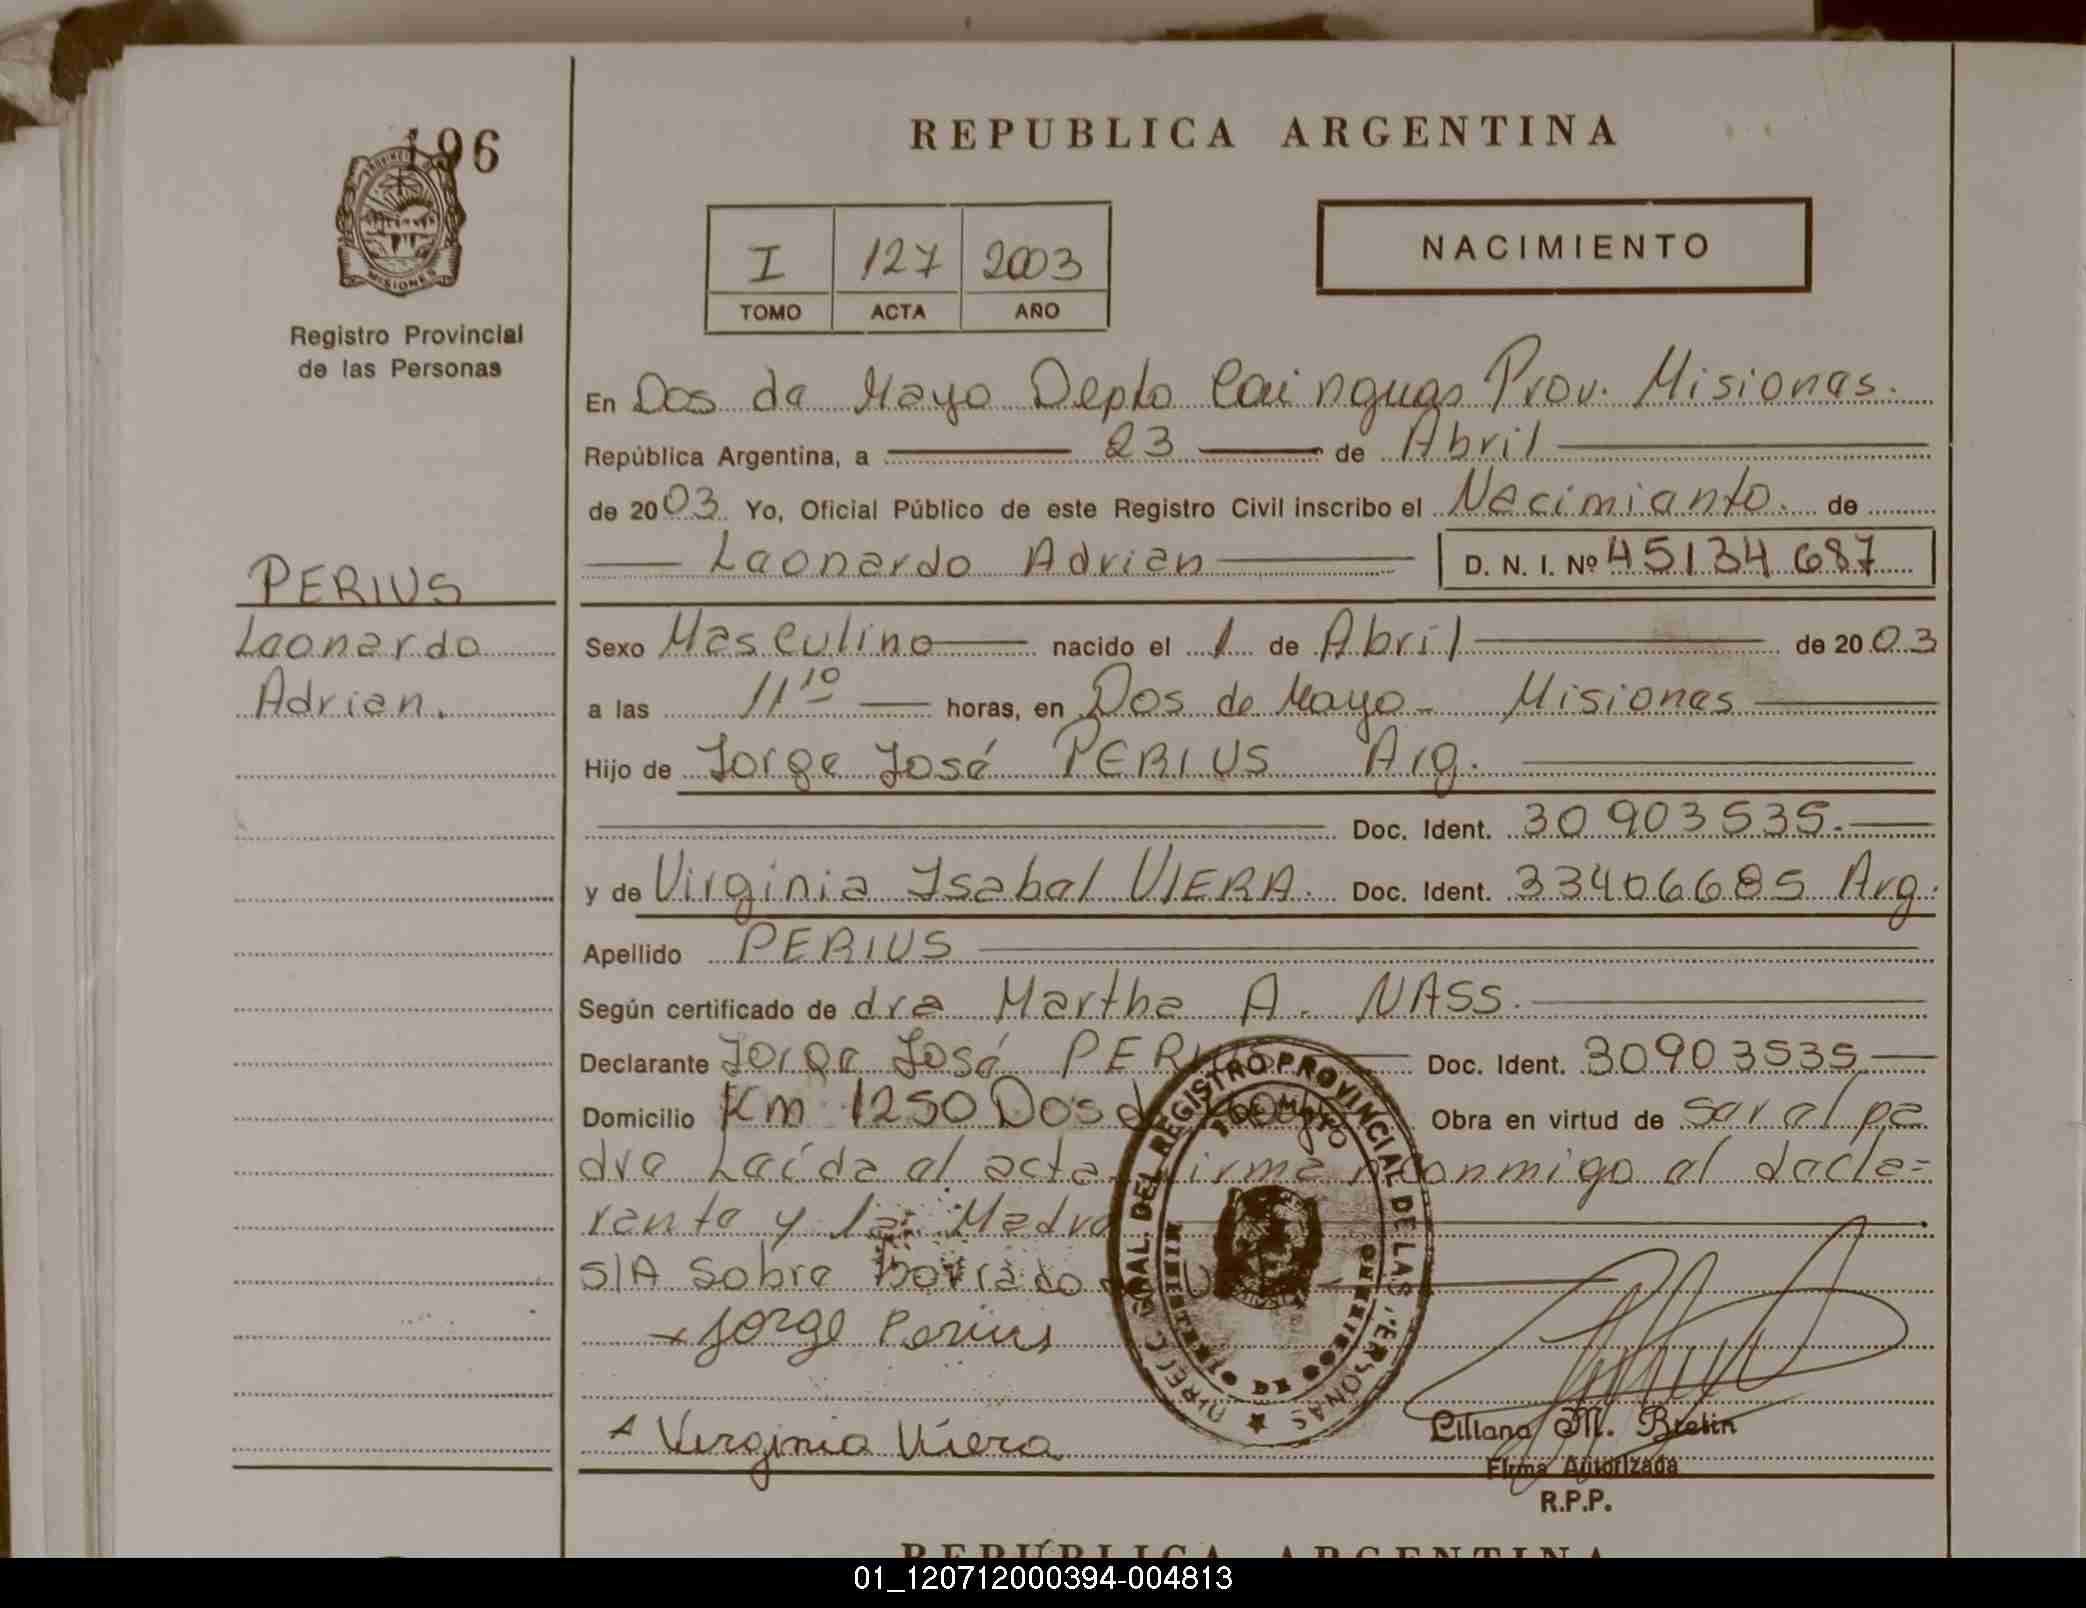 196
PROVINCIA
MISIONES
Registro Provincial
de las Personas
PERIUS
Leonardo
Adrian.
REPUBLICA ARGENTINA
I 127 2003
TOMO ACTA AÑO
NACIMIENTO
En Dos de Mayo Depto Cainguas Prov. Misiones.
República Argentina, a 23 de Abril
de 2003 Yo, Oficial Público de este Registro Civil inscribo el Nacimiento. de
Leonardo Adrian D. N. I. Nº 45134687
Sexo Masculino nacido el 1 de Abril de 2003
a las 11 10 horas, en Dos de Mayo - Misiones
Hijo de Jorge José PERIUS Arg.
Doc. Ident. 30903535.
y de Virginia Isabel VIERA. Doc. Ident. 33406685 Arg.
Apellido PERIUS
Según certificado de dra Martha A. NASS.
Declarante Jorge José PERIUS Doc. Ident. 30903535
Domicilio Km 1250 Dos de Mayo Obra en virtud de ser el pa
dre Leída el acta firma conmigo el decla=
rante y la Madre
S/A sobre borrado
Jorge Perius
Virginia Viera
DIRECC. GRAL. DEL REGISTRO PROVINCIAL DE LAS PERSONAS
2 DE MAYO
Liliana M. Brelin
Firma Autorizada
R.P.P.
REPÚBLICA ARGENTINA
01_120712000394-004813